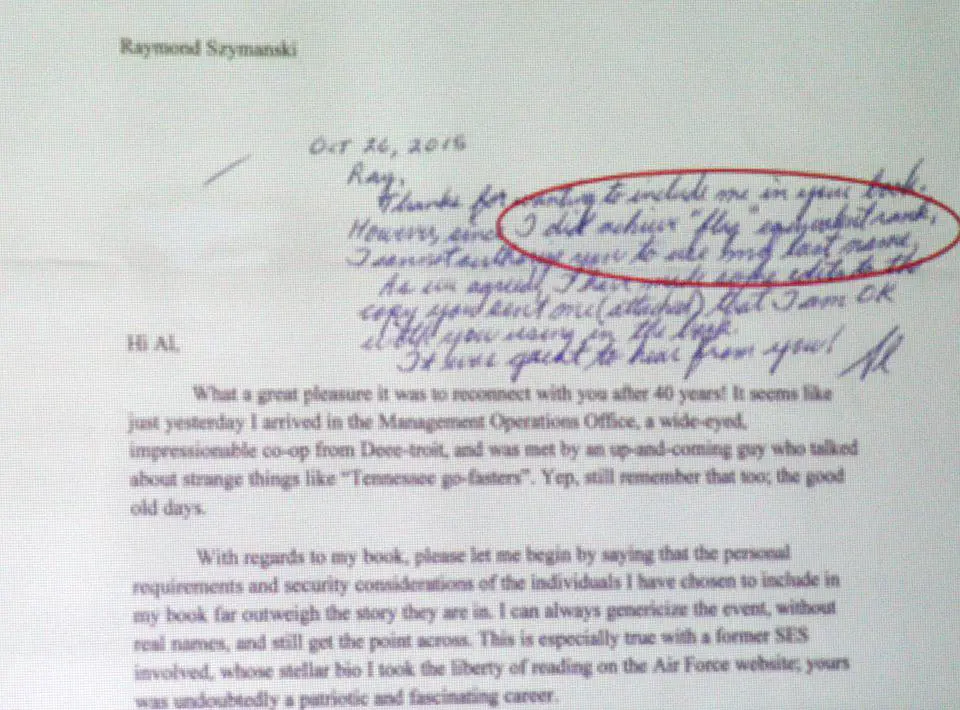 Raymond Szymanski
Oct 26, 2015
Ray,
Thanks for wanting to include me in your book.
However, since I did achieve "flag" equivalent rank,
I cannot authorize you to use my last name.
As we agreed, I have made some edits to the
copy you sent me (attached) that I am OK
with you using in the book.
It was great to hear from you! Al
Hi Al,
What a great pleasure it was to reconnect with you after 40 years! It seems like
just yesterday I arrived in the Management Operations Office, a wide-eyed,
impressionable co-op from Deee-troit, and was met by an up-and-coming guy who talked
about strange things like “Tennessee go-fasters”. Yep, still remember that too; the good
old days.
With regards to my book, please let me begin by saying that the personal
requirements and security considerations of the individuals I have chosen to include in
my book far outweigh the story they are in. I can always genericize the event, without
real names, and still get the point across. This is especially true with a former SES
involved, whose stellar bio I took the liberty of reading on the Air Force website; yours
was undoubtedly a patriotic and fascinating career.